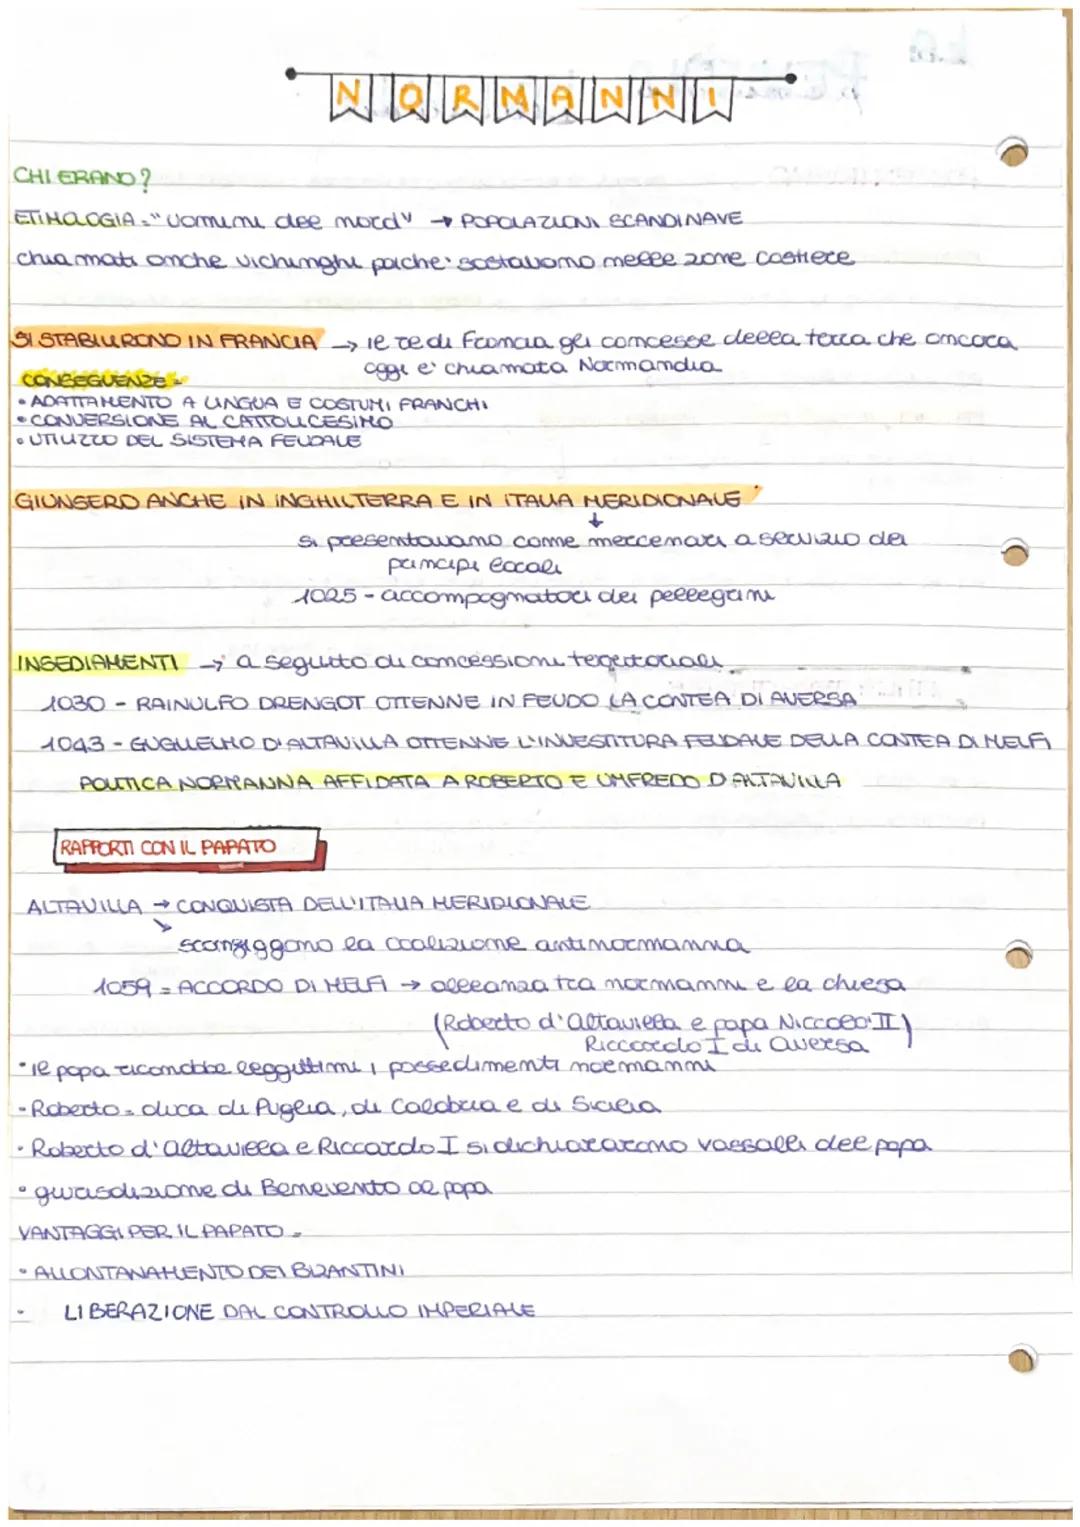 NORMANNI
CHI ERANO?
ETIMOLOGIA = "uomini del nord" → POPOLAZIONI SCANDINAVE
chiamati anche vichinghi poiche' sostavano nelle zone costiere
SI STABILIRONO IN FRANCIA → il re di Francia gli concesse della terra che ancora
oggi e' chiamata Normandia
CONSEGUENZE =
• ADATTAMENTO A LINGUA E COSTUMI FRANCHI
• CONVERSIONE AL CATTOLICESIMO
• UTILIZZO DEL SISTEMA FEUDALE
GIUNSERO ANCHE IN INGHILTERRA E IN ITALIA MERIDIONALE
↓
si presentavano come mercenari a servizio dei
principi locali
1025 - accompagnatori dei pellegrini
INSEDIAMENTI → a seguito di concessioni territoriali
1030 - RAINULFO DRENGOT OTTENNE IN FEUDO LA CONTEA DI AVERSA
1043 - GUGLIELMO D'ALTAVILLA OTTENNE L'INVESTITURA FEUDALE DELLA CONTEA DI MELFI
POLITICA NORMANNA AFFIDATA A ROBERTO E UMFREDO D'ALTAVILLA
RAPPORTI CON IL PAPATO
ALTAVILLA → CONQUISTA DELL'ITALIA MERIDIONALE
sconfiggono la coalizione antinormanna
1059 = ACCORDO DI MELFI → alleanza tra normanni e la chiesa
(Roberto d'Altavilla e papa Niccolo' II)
Riccardo I di Aversa
• il papa riconobbe leggittimi i possedimenti normanni
• Roberto = duca di Puglia, di Calabria e di Sicilia
• Roberto d'Altavilla e Riccardo I si dichiararono vassalli del papa
• giurisdizione di Benevento al papa
VANTAGGI PER IL PAPATO =
• ALLONTANAMENTO DEI BIZANTINI
• LIBERAZIONE DAL CONTROLLO IMPERIALE